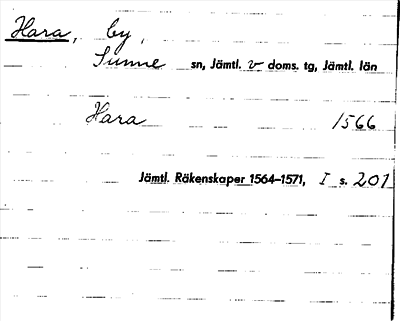 Hara, by,
Sunne sn, Jämtl. v doms. tg, Jämtl. län
Hara 1566
Jämtl. Räkenskaper 1564–1571, I s. 201